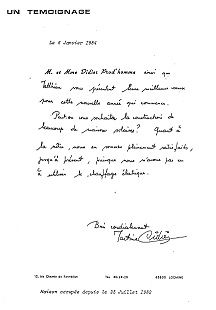 UN TEMOIGNAGE
Le 4 Janvier 1984
M. et Mme Didier Prud'homme ainsi que
vous présentent leurs meilleurs vœux
pour cette nouvelle année qui commence.
Peut-on vous souhaiter la construction de
beaucoup de maisons solaires ? Quant à
la nôtre, nous en sommes pleinement satisfaits,
jusqu'à présent, puisque nous n'avons pas eu
à utiliser le chauffage électrique.
Bien cordialement
Maison occupée depuis le 23 Juillet 1982